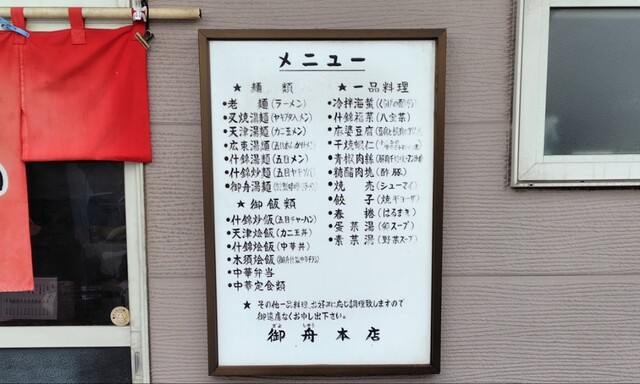 メニュー
★ 麺 類
●老 麺(ラーメン)
●叉焼湯麺(ヤキブタメン)
●天津湯麺(カニ玉メン)
●広東湯麺
●什錦湯麺(五目メン)
●什錦炒麺(五目ヤキソバ)
●御舟湯麺
★御飯類
●什錦炒飯(五目チャーハン)
●天津燴飯(カニ玉丼)
●什錦燴飯(中華丼)
●木須燴飯
●中華弁当
●中華定食類
★一品料理
●冷拌海蜇
●什錦稲菜(八宝菜)
●麻婆豆腐
●干焼蝦仁
●青椒肉絲
●糖醋肉塊(酢豚)
●焼 売(シューマイ)
●餃 子(焼ギョーザ)
●春 捲(はるまき)
●蛋菜湯(卵スープ)
●素菜湯(野菜スープ)
★ その他一品料理、お好みに応じ調理致しますので
御遠慮なくお申し出下さい。
御舟本店